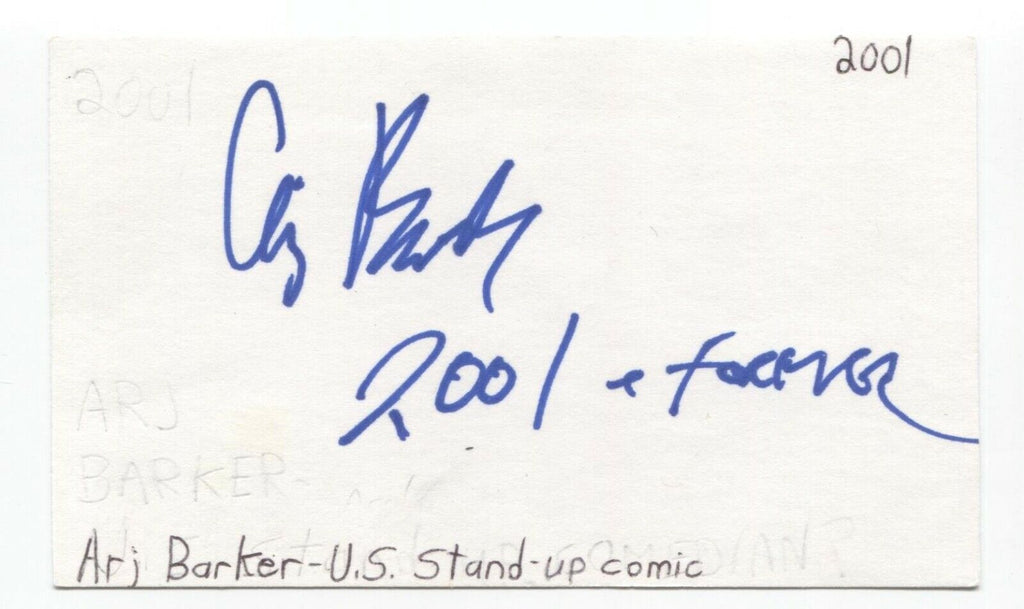 2001
2001
Arj Barker
2001 - forever
ARJ
BARKER-
Arj Barker-U.S. Stand-up comic
COMEDIAN?